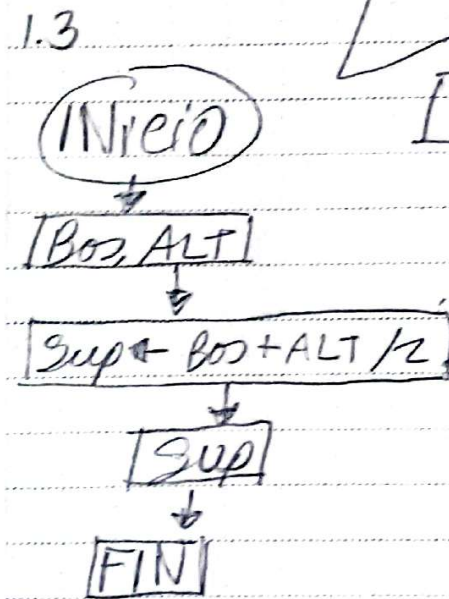 1.3
INICIO
Bas, ALT
Sup ← Bas + ALT / 2
Sup
FIN